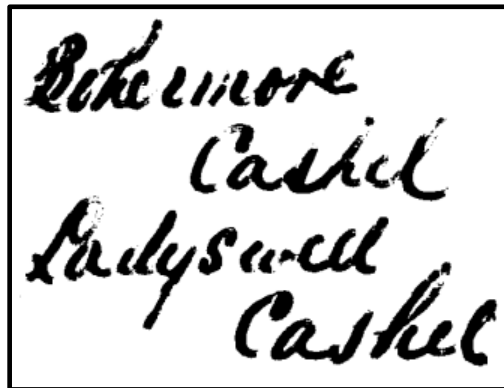 Bohermore
Cashel
Ladyswell
Cashel